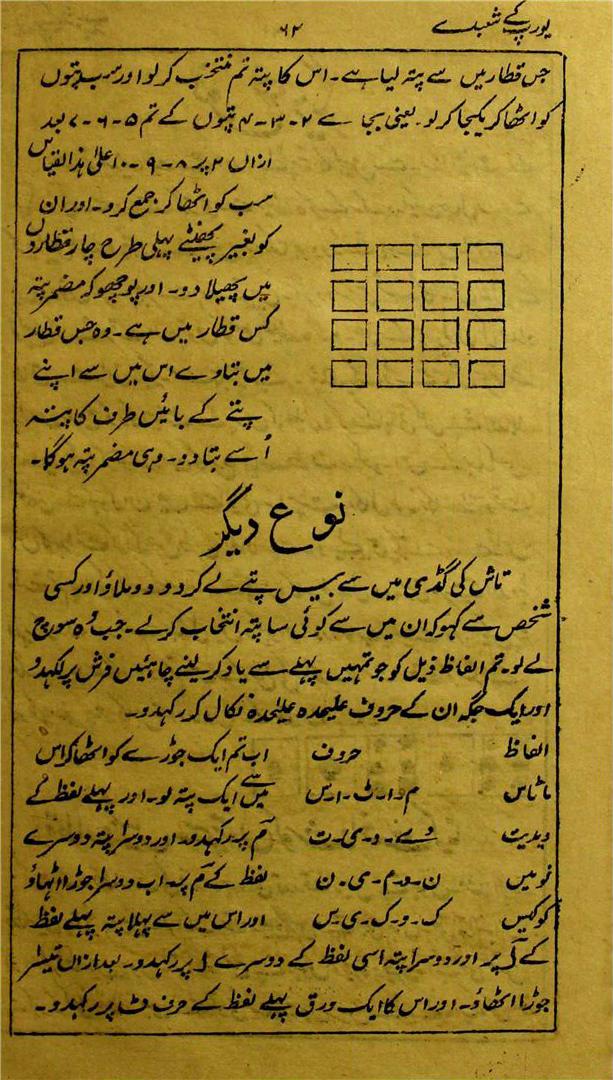 یورپ کے شعبدے
۶۲
جس قطار میں سے پتہ لیا ہے۔ اس کا پتہ تم منتخب کر لو اور سب پتوں
کو اٹھا کر یکجا کر لو۔ یعنی بجا ے ۲-۳-۴ پتوں کے تم ۵-۶-۷ بعد
ازاں ۲ پر ۸-۹-۱۰ علیٰ ہذا القیاس
سب کو اٹھا کر جمع کرو۔ اور ان
کو بغیر پھینٹے پہلی طرح چار قطاروں
میں پھیلا دو۔ اور پوچھو کہ مضمر پتہ
کس قطار میں ہے۔ وہ جس قطار
میں بتاوے اس میں سے اپنے
پتے کے بائیں طرف کا پتہ
اُسے بتا دو۔ وہی مضمر پتہ ہوگا۔
نوع دیگر
تاش کی گڈی میں سے بیس پتے لے کر دو دو ملاؤ اور کسی
شخص سے کہو کہ ان میں سے کوئی سا پتہ انتخاب کرلے۔ جب وُہ سوچ
لے لو۔ تم الفاظ ذیل کو جو تمہیں پہلے سے یاد کر لینے چاہئیں فرش پر لکھدو
اور ایک جگہ ان کے حروف علیحدہ علیحدہ نکال کر رکھدو۔
الفاظ حروف اب تم ایک جوڑے کو اٹھا کر اس
ماٹاس م۔ا۔ٹ۔ا۔س میں سے ایک پتہ لو۔ اور پہلے لفظ کے
ویدیت و۔ے۔د۔ی۔ت م پر رکھدو۔ اور دوسرا پتہ دوسرے
نومیں ن۔و۔م۔ی۔ن لفظ کے م پر۔ اب دوسرا جوڑا اٹھاؤ
کوکیس ک۔و۔ک۔ی۔س اور اس میں سے پہلا پتہ پہلے لفظ
کے ا پر اور دوسرا پتہ اسی لفظ کے دوسرے ا پر رکھدو۔ بعد ازاں تیسرا
جوڑا اٹھاؤ۔ اور اس کا ایک ورق پہلے لفظ کے حرف ٹ پر رکھدو۔